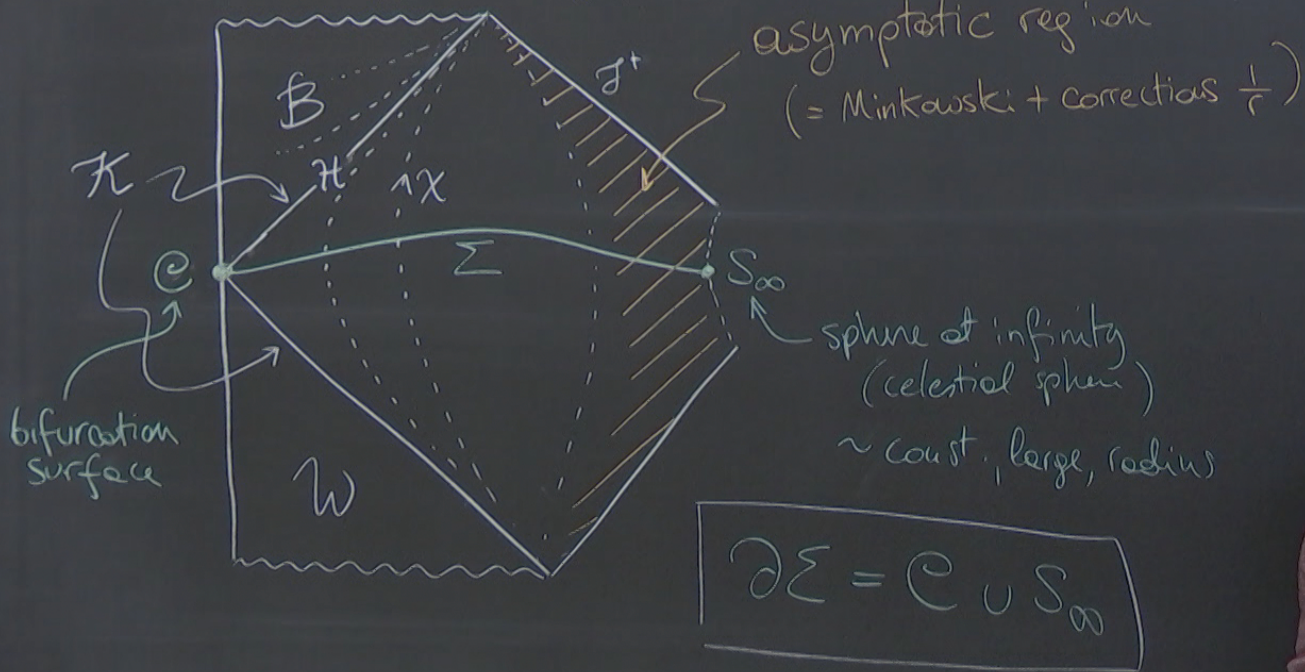 asymptotic region
(= Minkowski + corrections 1/r)
𝓘⁺
B
H
K
↑χ
Σ
C
S∞
sphere at infinity
(celestial sphere)
~ const., large, radius
bifurcation
surface
W
∂Σ = C ∪ S∞